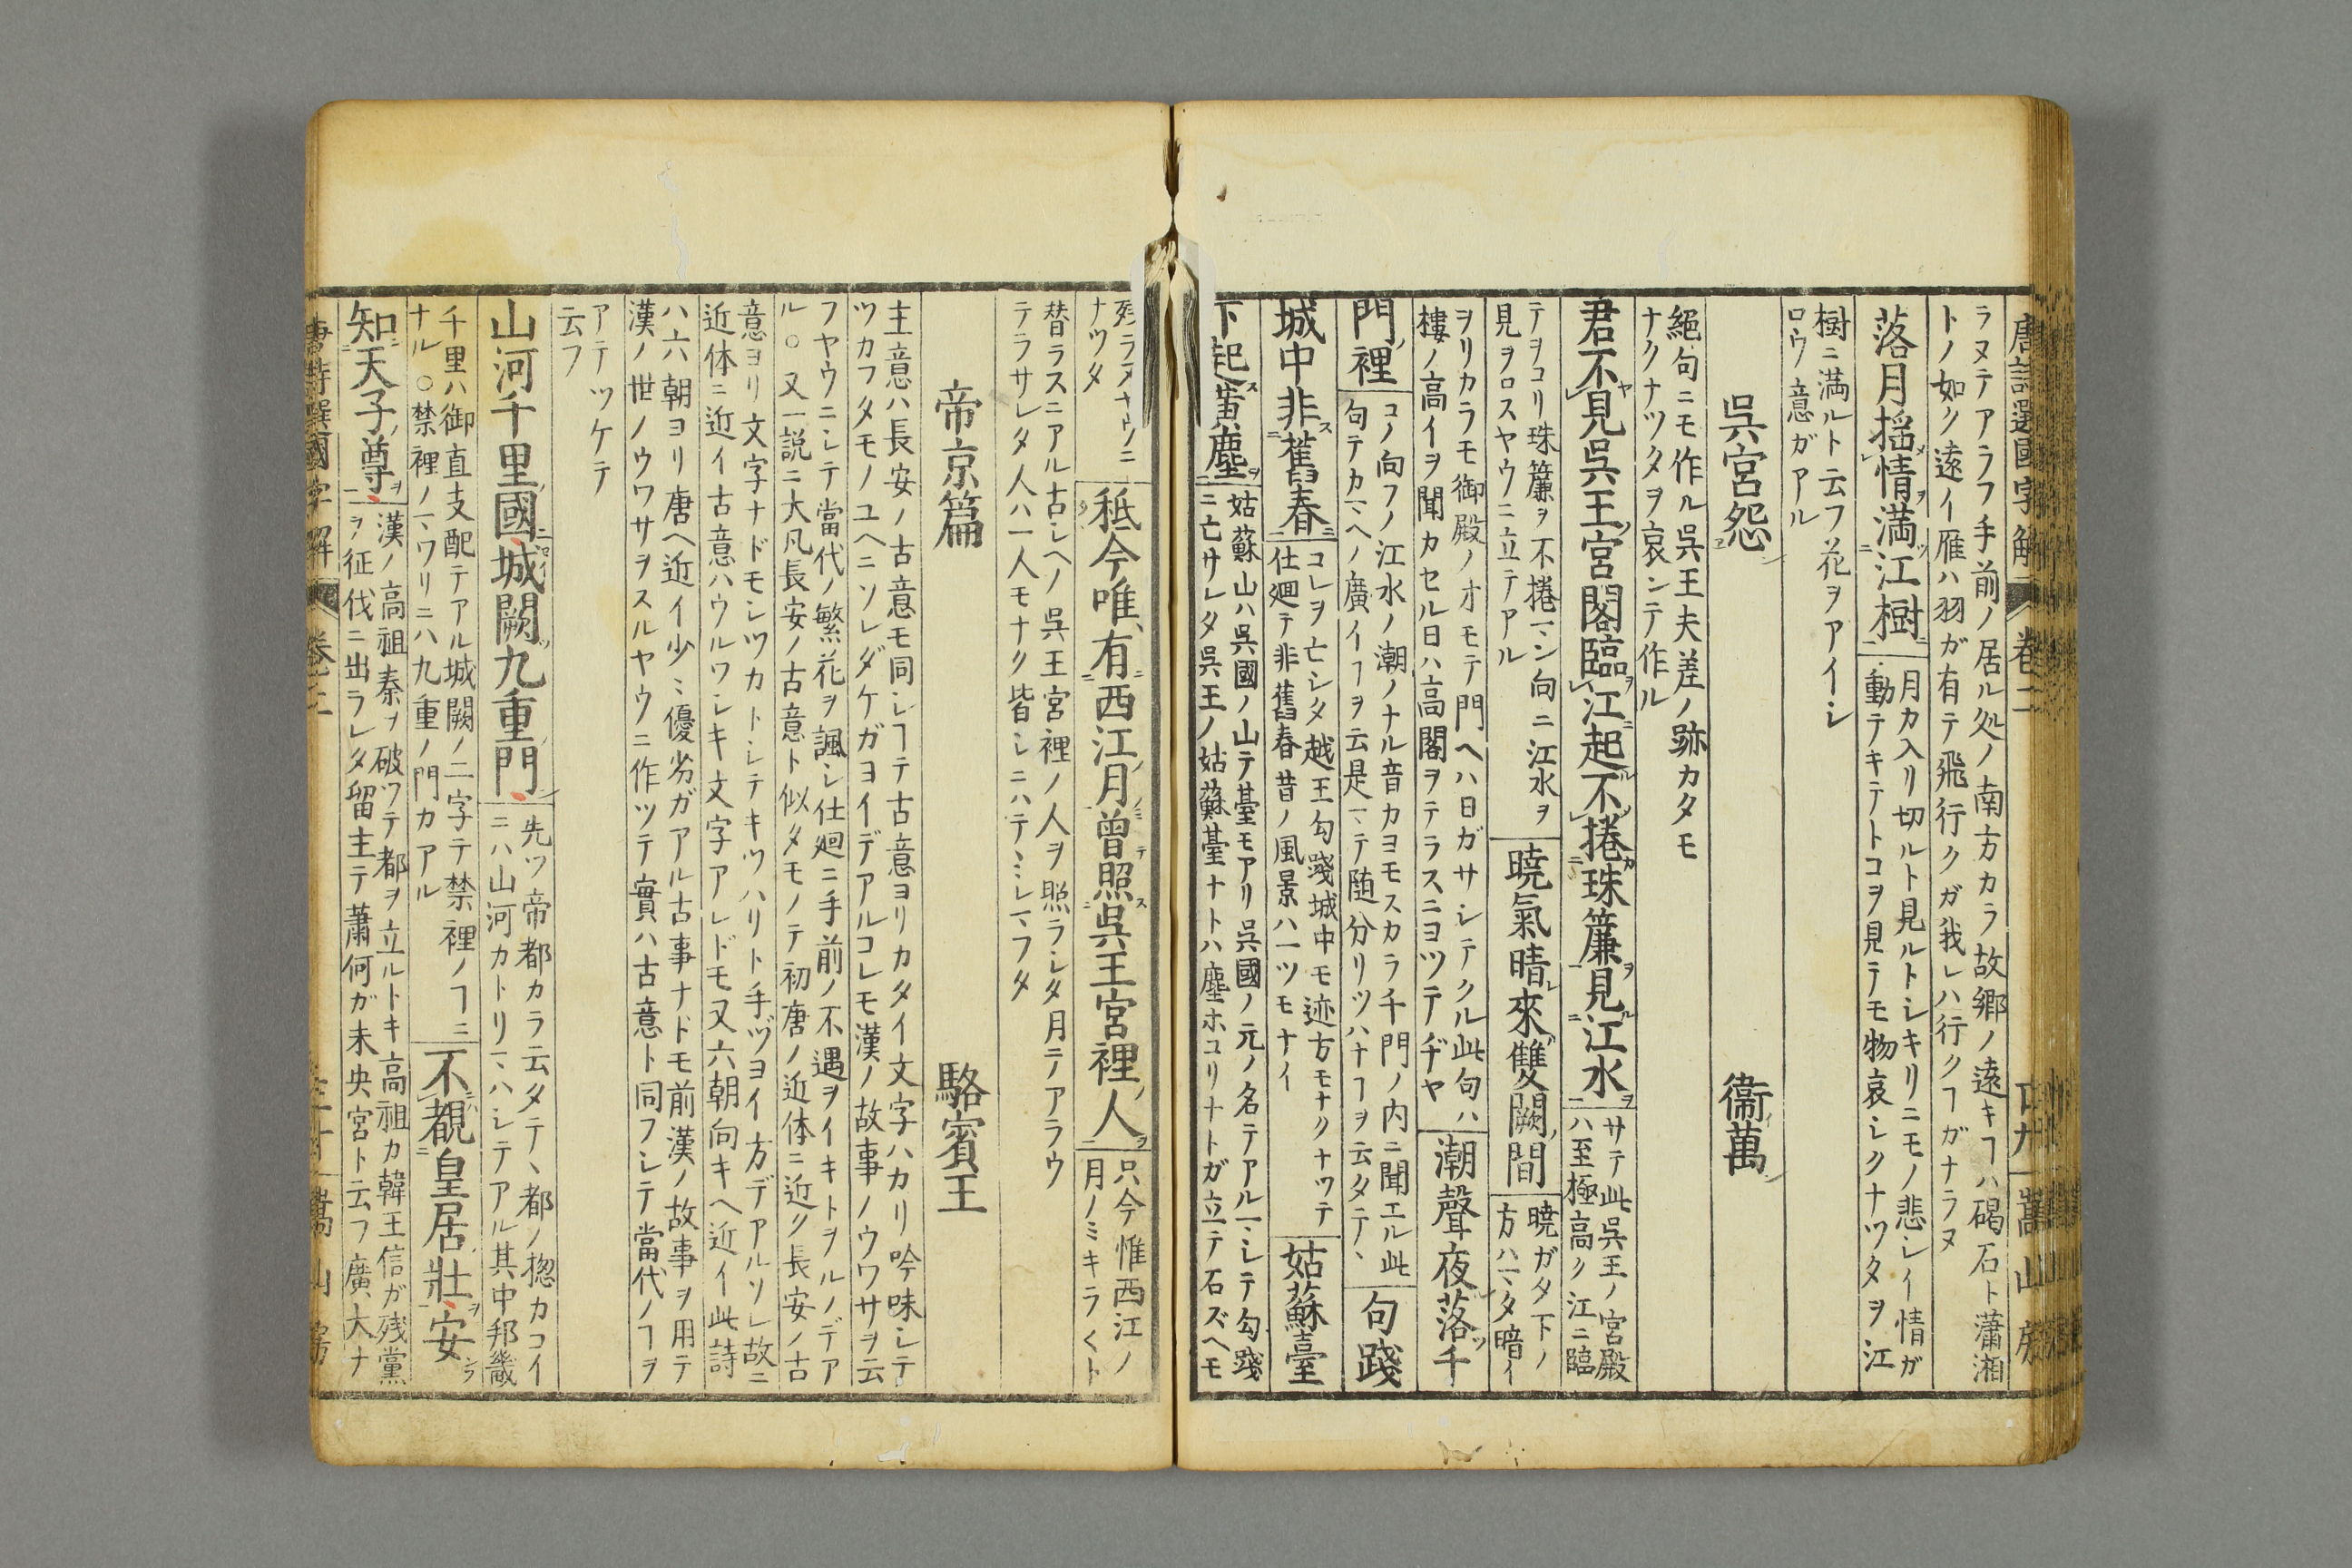 唐詩選國字解 卷二 嵩山房
ラヌテアラフ手前ノ居ル処ノ南方カラ故郷ノ遠キヿハ碣石ト瀟湘
トノ如ク遠イ雁ハ羽ガ有テ飛行クガ我レハ行クヿガナラヌ
落月搖情満江樹
月カ入リ切ルト見ルトシキリニモノ悲シイ情ガ
動テキテトコヲ見テモ物哀シクナツタヲ江
樹ニ満ルト云フ花ヲアイシ
ロウ意ガアル
呉宮怨 衞萬
絕句ニモ作ル呉王夫差ノ跡カタモ
ナクナツタヲ哀ンテ作ル
君不見呉王宮閣臨江起不捲珠簾見江水
サテ此呉王ノ宮殿
ハ至極高ク江ニ臨
テヲコリ珠簾ヲ不捲シ向ニ江水ヲ
見ヲロスヤウニ立テアル
曉氣晴來雙闕間
曉ガタ下ノ
方ハマタ暗イ
ヲリカラモ御殿ノオモテ門ヘハ日ガサシテクル此句ハ
樓ノ高イヲ聞カセル日ハ高閣ヲテラスニヨツテヂヤ
潮聲夜落千
門裡
コノ向フノ江水ノ潮ノナル音カヨモスカラ千門ノ内ニ聞エル此
句テカマヘノ廣イヿヲ云是マテ随分リツハナヿヲ云タテヽ
句踐
城中非舊春
コレヲ亡シタ越王勾踐城中モ迹方モナクナツテ
仕廻テ非舊春昔ノ風景ハ一ツモナイ
姑蘇臺
下起黄塵
姑蘇山ハ呉國ノ山テ臺モアリ呉國ノ元ノ名テアルマシテ勾踐
ニ亡サレタ呉王ノ姑蘇臺ナトハ塵ホコリナトガ立テ石ズヘモ
残ラヌヤウニ
ナツタ
秖今唯有西江月曾照呉王宮裡人
只今惟西江ノ
月ノミキラ〱ト
替ラスニアル古シヘノ呉王宮裡ノ人ヲ照ラシタ月ニアラウ
テラサレタ人ハ一人モナク皆シニハテヽシマフタ
帝京篇 駱賓王
主意ハ長安ノ古意モ同シヿテ古意ヨリカタイ文字ハカリ吟味シテ
ツカフタモノユヘニソレダケガヨイデアルコレモ漢ノ故事ノウワサヲ云
フヤウニシテ當代ノ繁花ヲ諷シ仕廻ニ手前ノ不遇ヲイキトヲルノデア
ル○又一説ニ大凡長安ノ古意ト似タモノテ初唐ノ近体ニ近ク長安ノ古
意ヨリ文字ナドモシツカトシテキツハリト手ヅヨイ方デアルソレ故ニ
近体ニ近イ古意ハウルワシキ文字アレドモ又六朝向キヘ近イ此詩
ハ六朝ヨリ唐ヘ近イ少ミ優劣ガアル古事ナドモ前漢ノ故事ヲ用テ
漢ノ世ノウワサヲスルヤウニ作ツテ實ハ古意ト同フシテ當代ノヿヲ
アテツケテ
云フ
山河千里國城闕九重門
先ツ帝都カラ云タテヽ都ノ惣カコイ
ニハ山河カトリマハシテアル其中邦畿
千里ハ御直支配テアル城闕ノ二字テ禁裡ノヿニ
ナル○禁裡ノマワリニハ九重ノ門カアル
不覩皇居壯安
知天子尊
漢ノ高祖秦ヲ破ツテ都ヲ立ルトキ高祖カ韓王信ガ残黨
ヲ征伐ニ出ラレタ留主テ蕭何ガ未央宮ト云フ廣大ナ
唐詩選國字解 卷二 嵩山房